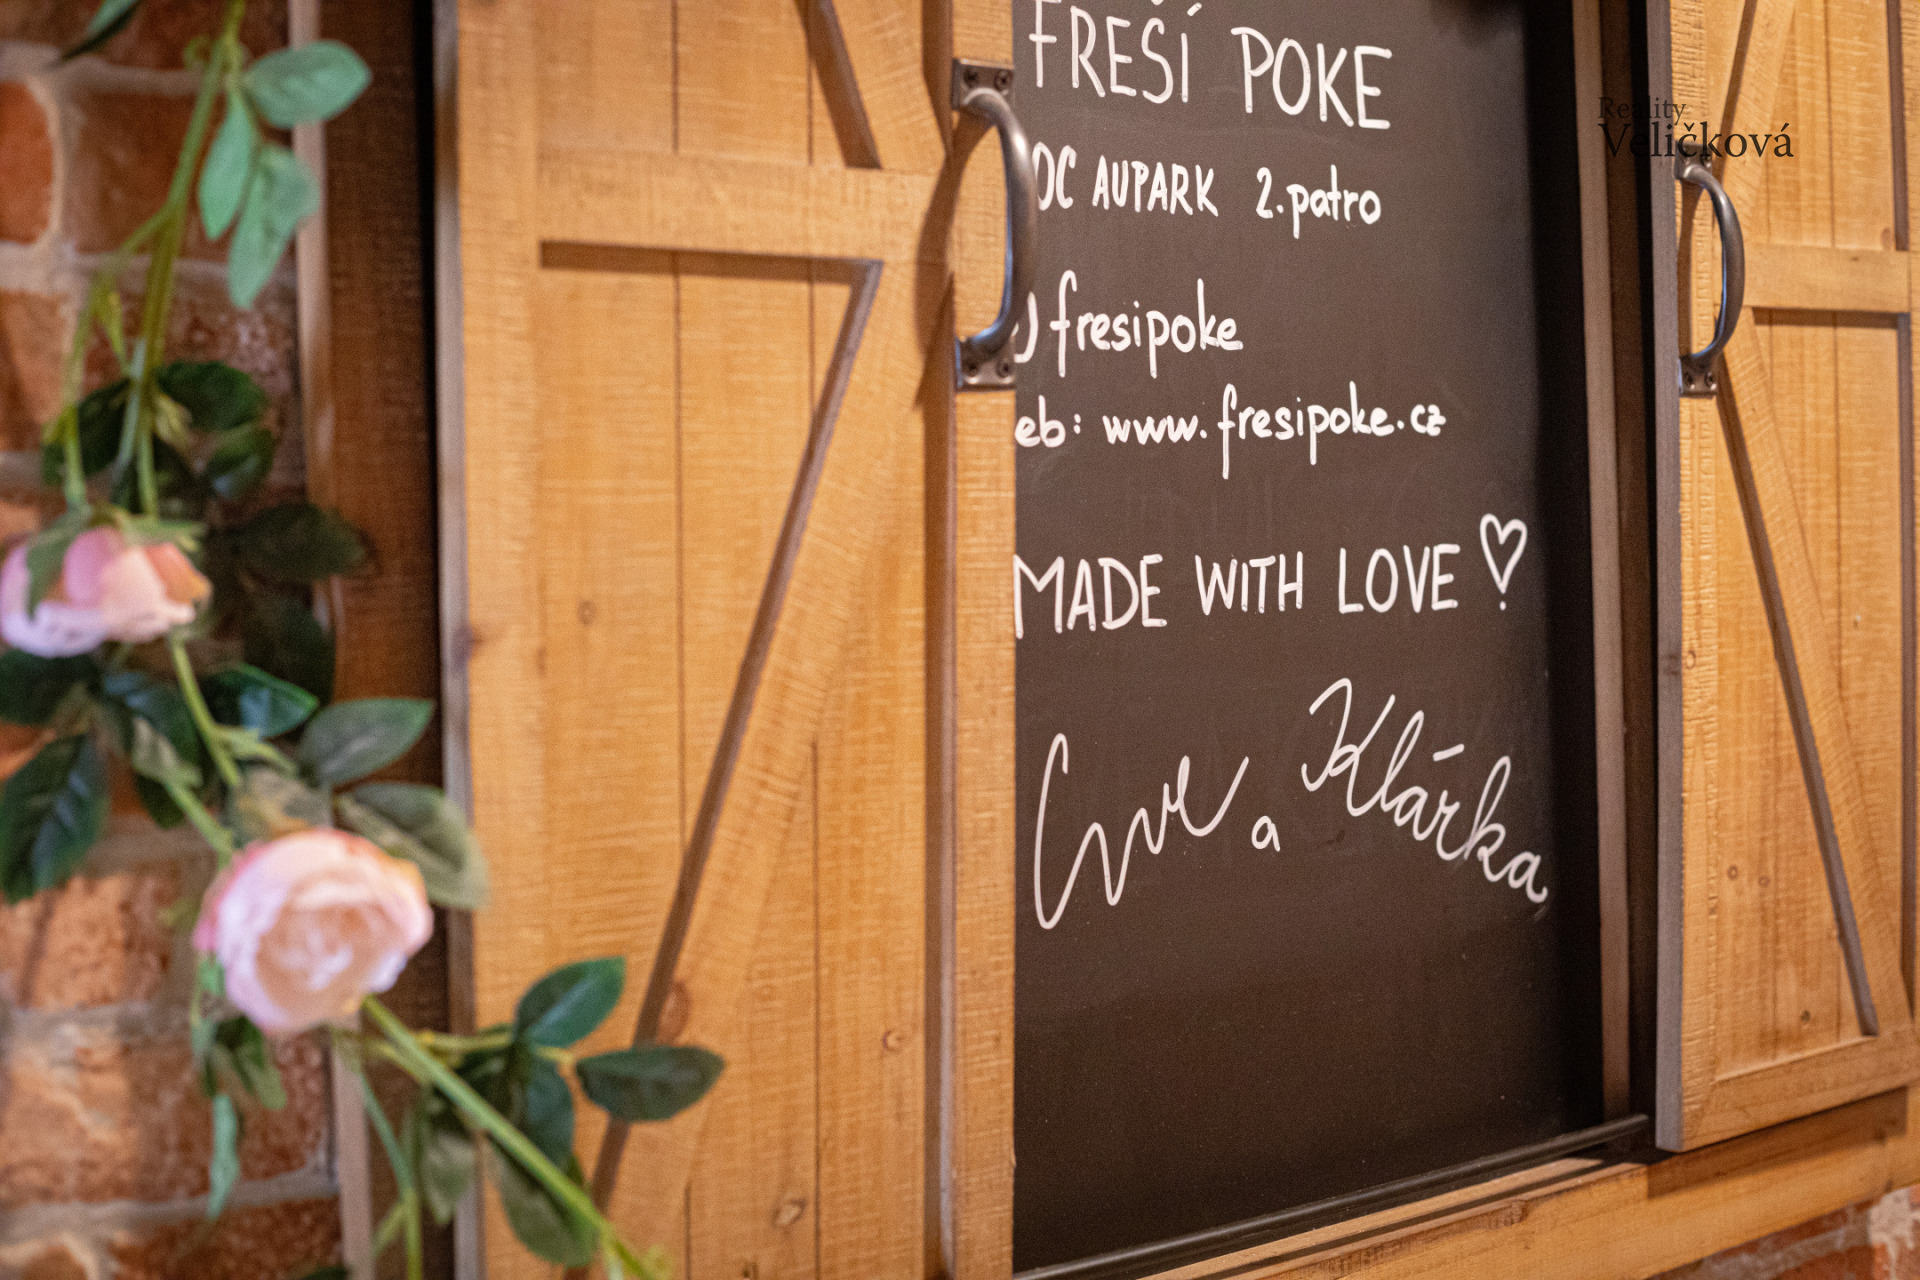 FREŠÍ POKE
Reality
Veličková
OC AUPARK 2.patro
fresipoke
eb: www.fresipoke.cz
MADE WITH LOVE
a Klárka